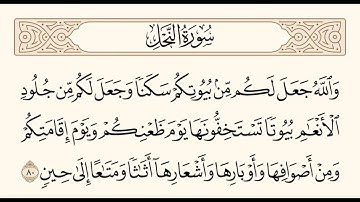 سُورَةُ النَّحْلِ
وَاللَّهُ جَعَلَ لَكُم مِّنۢ بُيُوتِكُمْ سَكَنًا وَجَعَلَ لَكُم مِّن جُلُودِ
الْأَنْعَامِ بُيُوتًا تَسْتَخِفُّونَهَا يَوْمَ ظَعْنِكُمْ وَيَوْمَ إِقَامَتِكُمْ
وَمِنْ أَصْوَافِهَا وَأَوْبَارِهَا وَأَشْعَارِهَا أَثَاثًا وَمَتَاعًا إِلَىٰ حِينٍ ٨٠